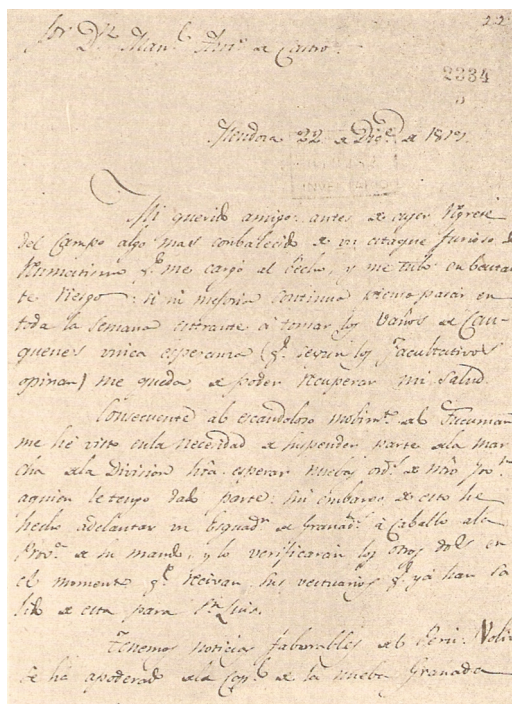 22
Sor. Dn. Manl. Anto. de Castro.
2334
Mendoza 22 de Dice. de 1819.
Mi querido amigo: antes de ayer regresé
del Campo algo mas conbalecido de un ataque furioso de
Reumatismo qe. me cargó al Pecho, y me tubo en bastan
te riesgo: si mi mejoria continua pienso pasar en
toda la semana entrante á tomar los Vaños de Cau-
quenes unica esperanza (qe. segun los facultativos
opinan) me queda de poder recuperar mi salud.
Consecuente al escandoloso mobimto. del Tucuman
me hé visto en la necesidad de suspender parte de la mar
cha de la Division hta. esperar nuebas ords. de nro
aquien le tengo dado parte: sin embargo de esto he
hecho adelantar un Esquadn. de Granads. á Caballo á la
Prova. de su mando, y lo verificarán los otros dos en
el momento qe. recivan sus vestuarios qe. ya han sa
lido de esta para Sn. Luis.
Tenemos noticias faborables del Perú. Bolivar
se ha apoderado de la Capl. de la nueba Granada